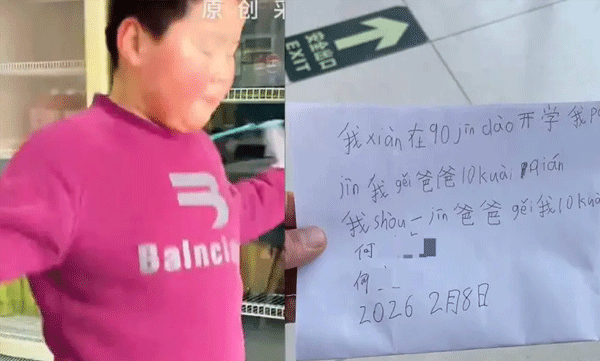 原创采
Balncia
安全出口
EXIT
我xiàn在90jīn dào开学 我p
jīn 我gěi爸爸10kuài qián
我shòu一jīn爸爸gěi我10kuà
何
何
2026 2月8日